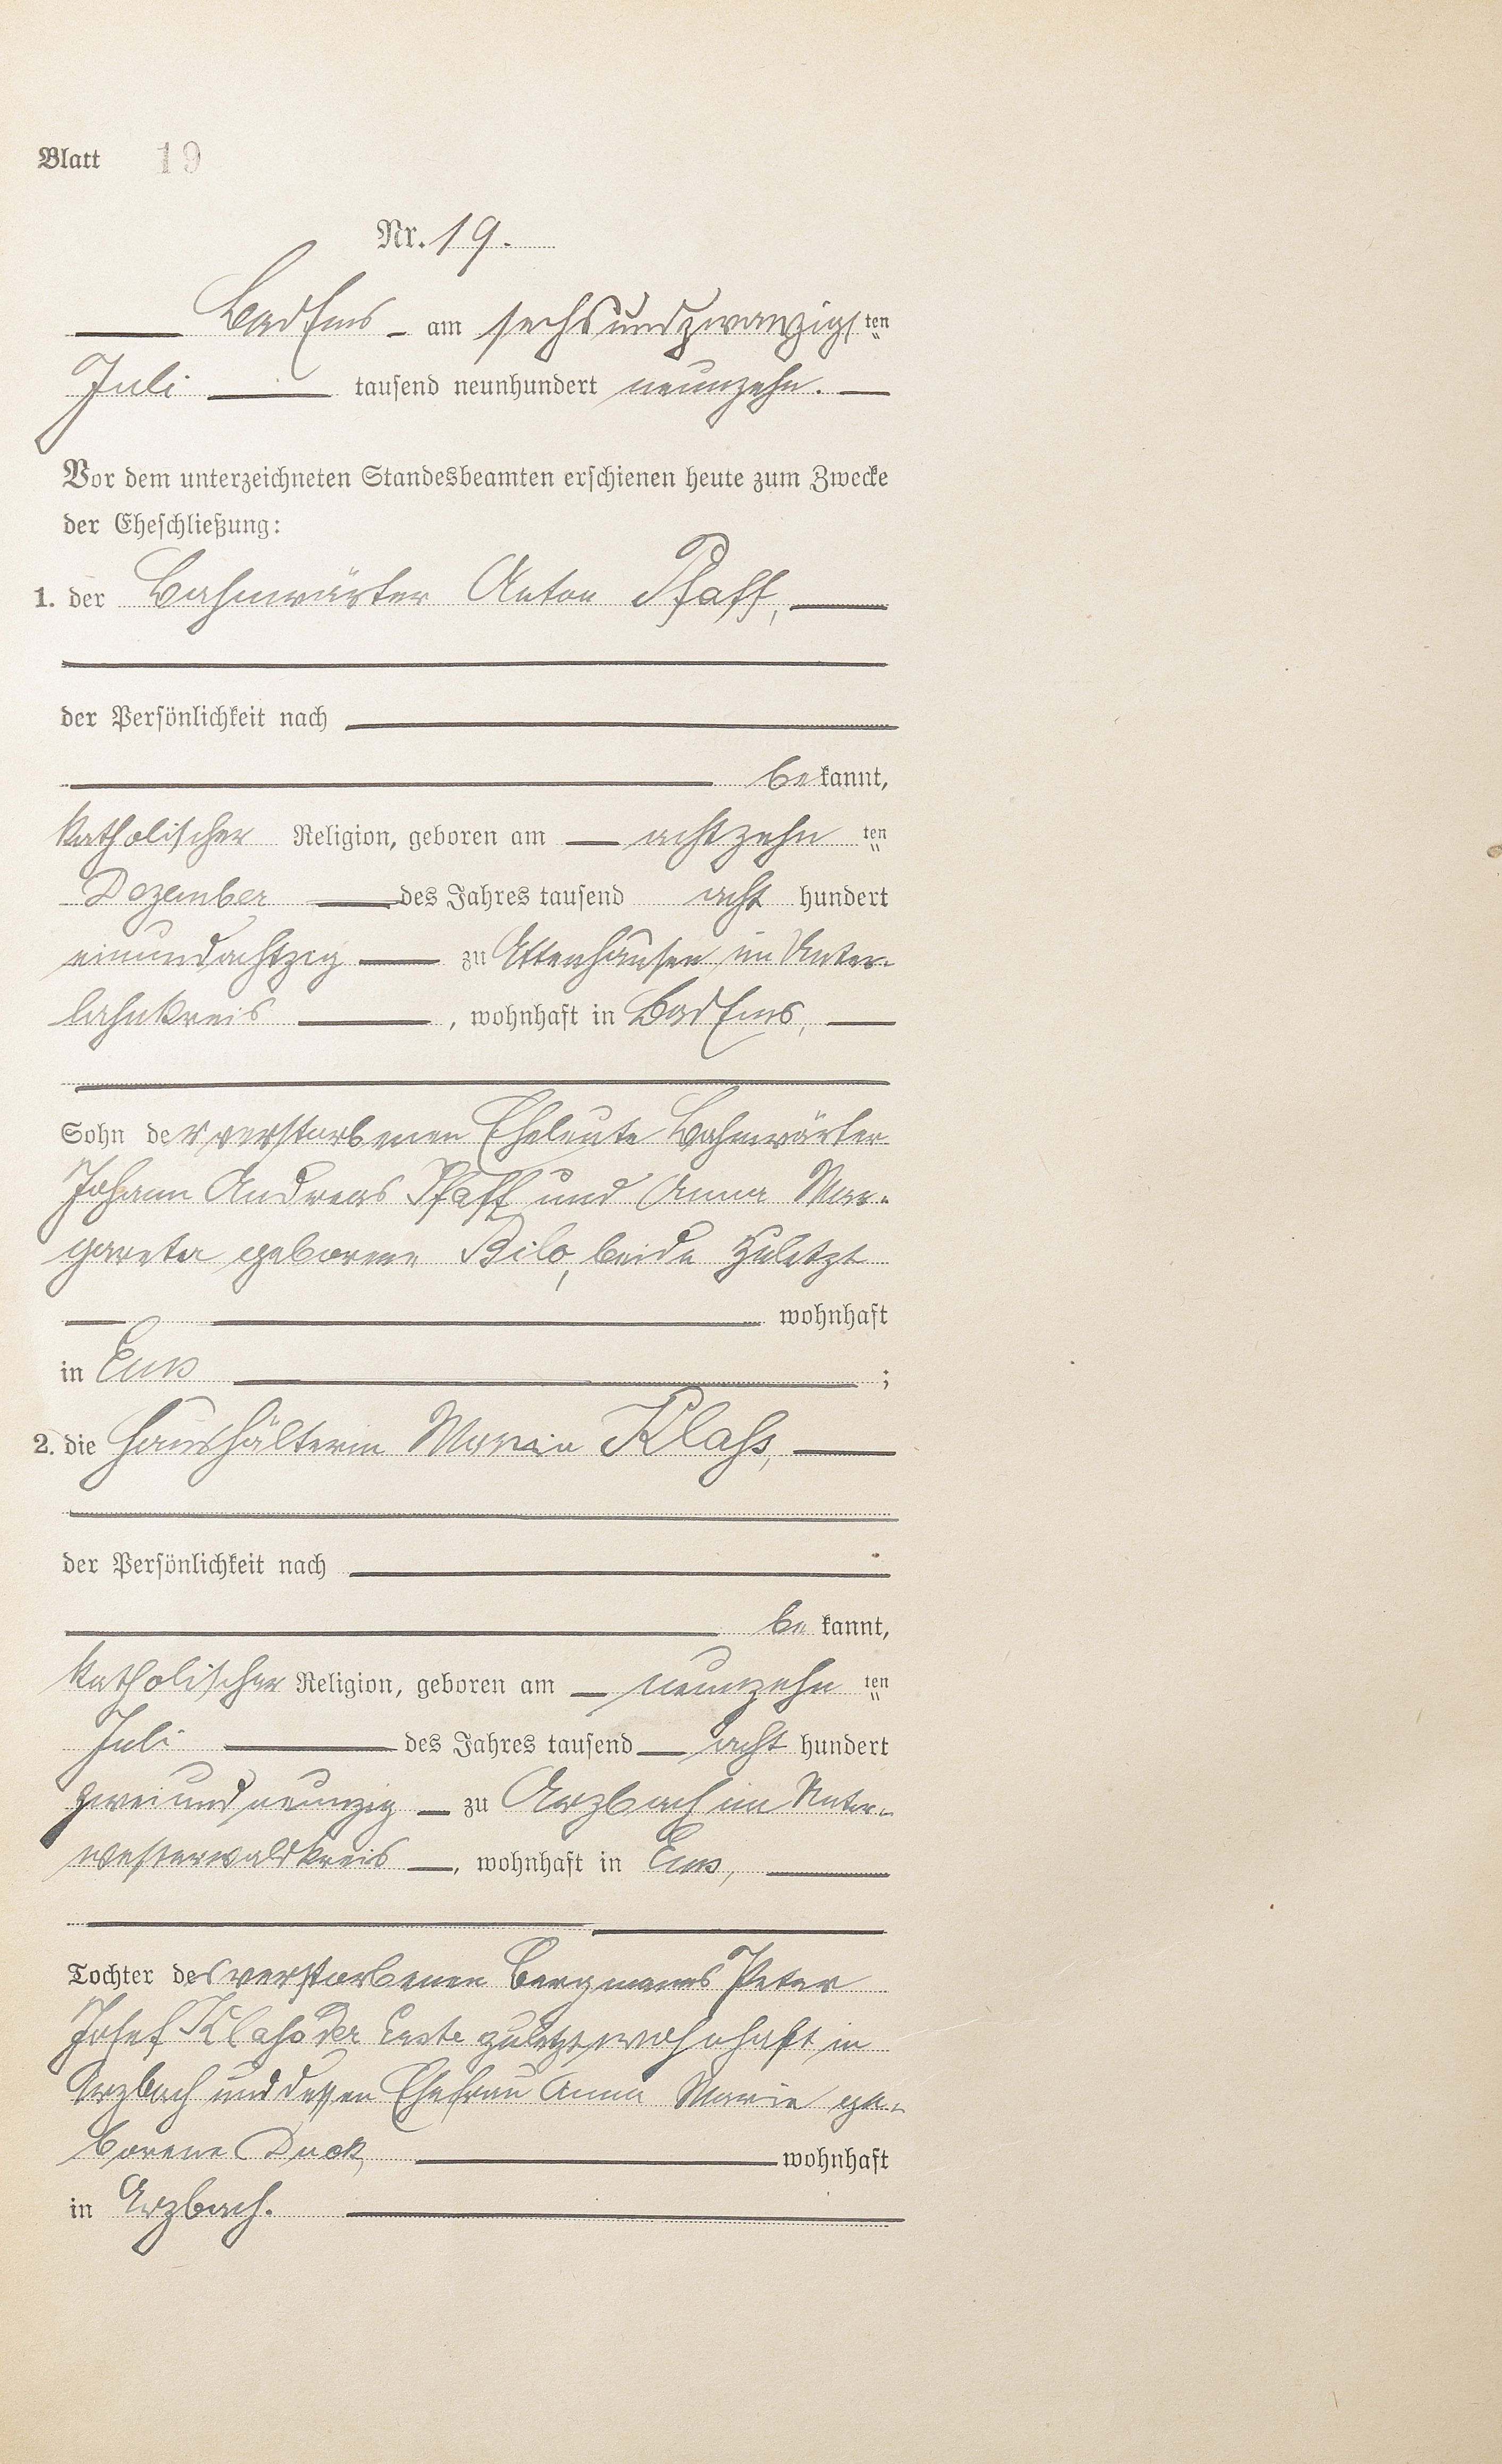 Blatt 19
Nr. 19.
Bad Ems am sechsundzwanzigsten
Juli tausend neunhundert neunzehn.
Vor dem unterzeichneten Standesbeamten erschienen heute zum Zwecke
der Eheschließung:
1. der Bahnwärter Anton Pfaff,
der Persönlichkeit nach
bekannt,
katholischer Religion, geboren am achtzehnten
Dezember des Jahres tausend acht hundert
einundachtzig zu Attenhausen im Unter-
lahnkreis, wohnhaft in Bad Ems,
Sohn der verstorbenen Eheleute Bahnwärter
Johann Andreas Pfaff und Anna Mar-
gareta geborene Bilo, beide zuletzt
wohnhaft
in Ems ;
2. die Haushälterin Maria Klaß,
der Persönlichkeit nach
bekannt,
katholischer Religion, geboren am neunzehnten
Juli des Jahres tausend acht hundert
zweiundneunzig zu Arzbach im Unter-
westerwaldkreis, wohnhaft in Ems,
Tochter des verstorbenen Bergmanns Peter
Josef Klaß der Erste zuletzt wohnhaft in
Arzbach und dessen Ehefrau Anna Maria ge-
borene Duck, wohnhaft
in Arzbach.